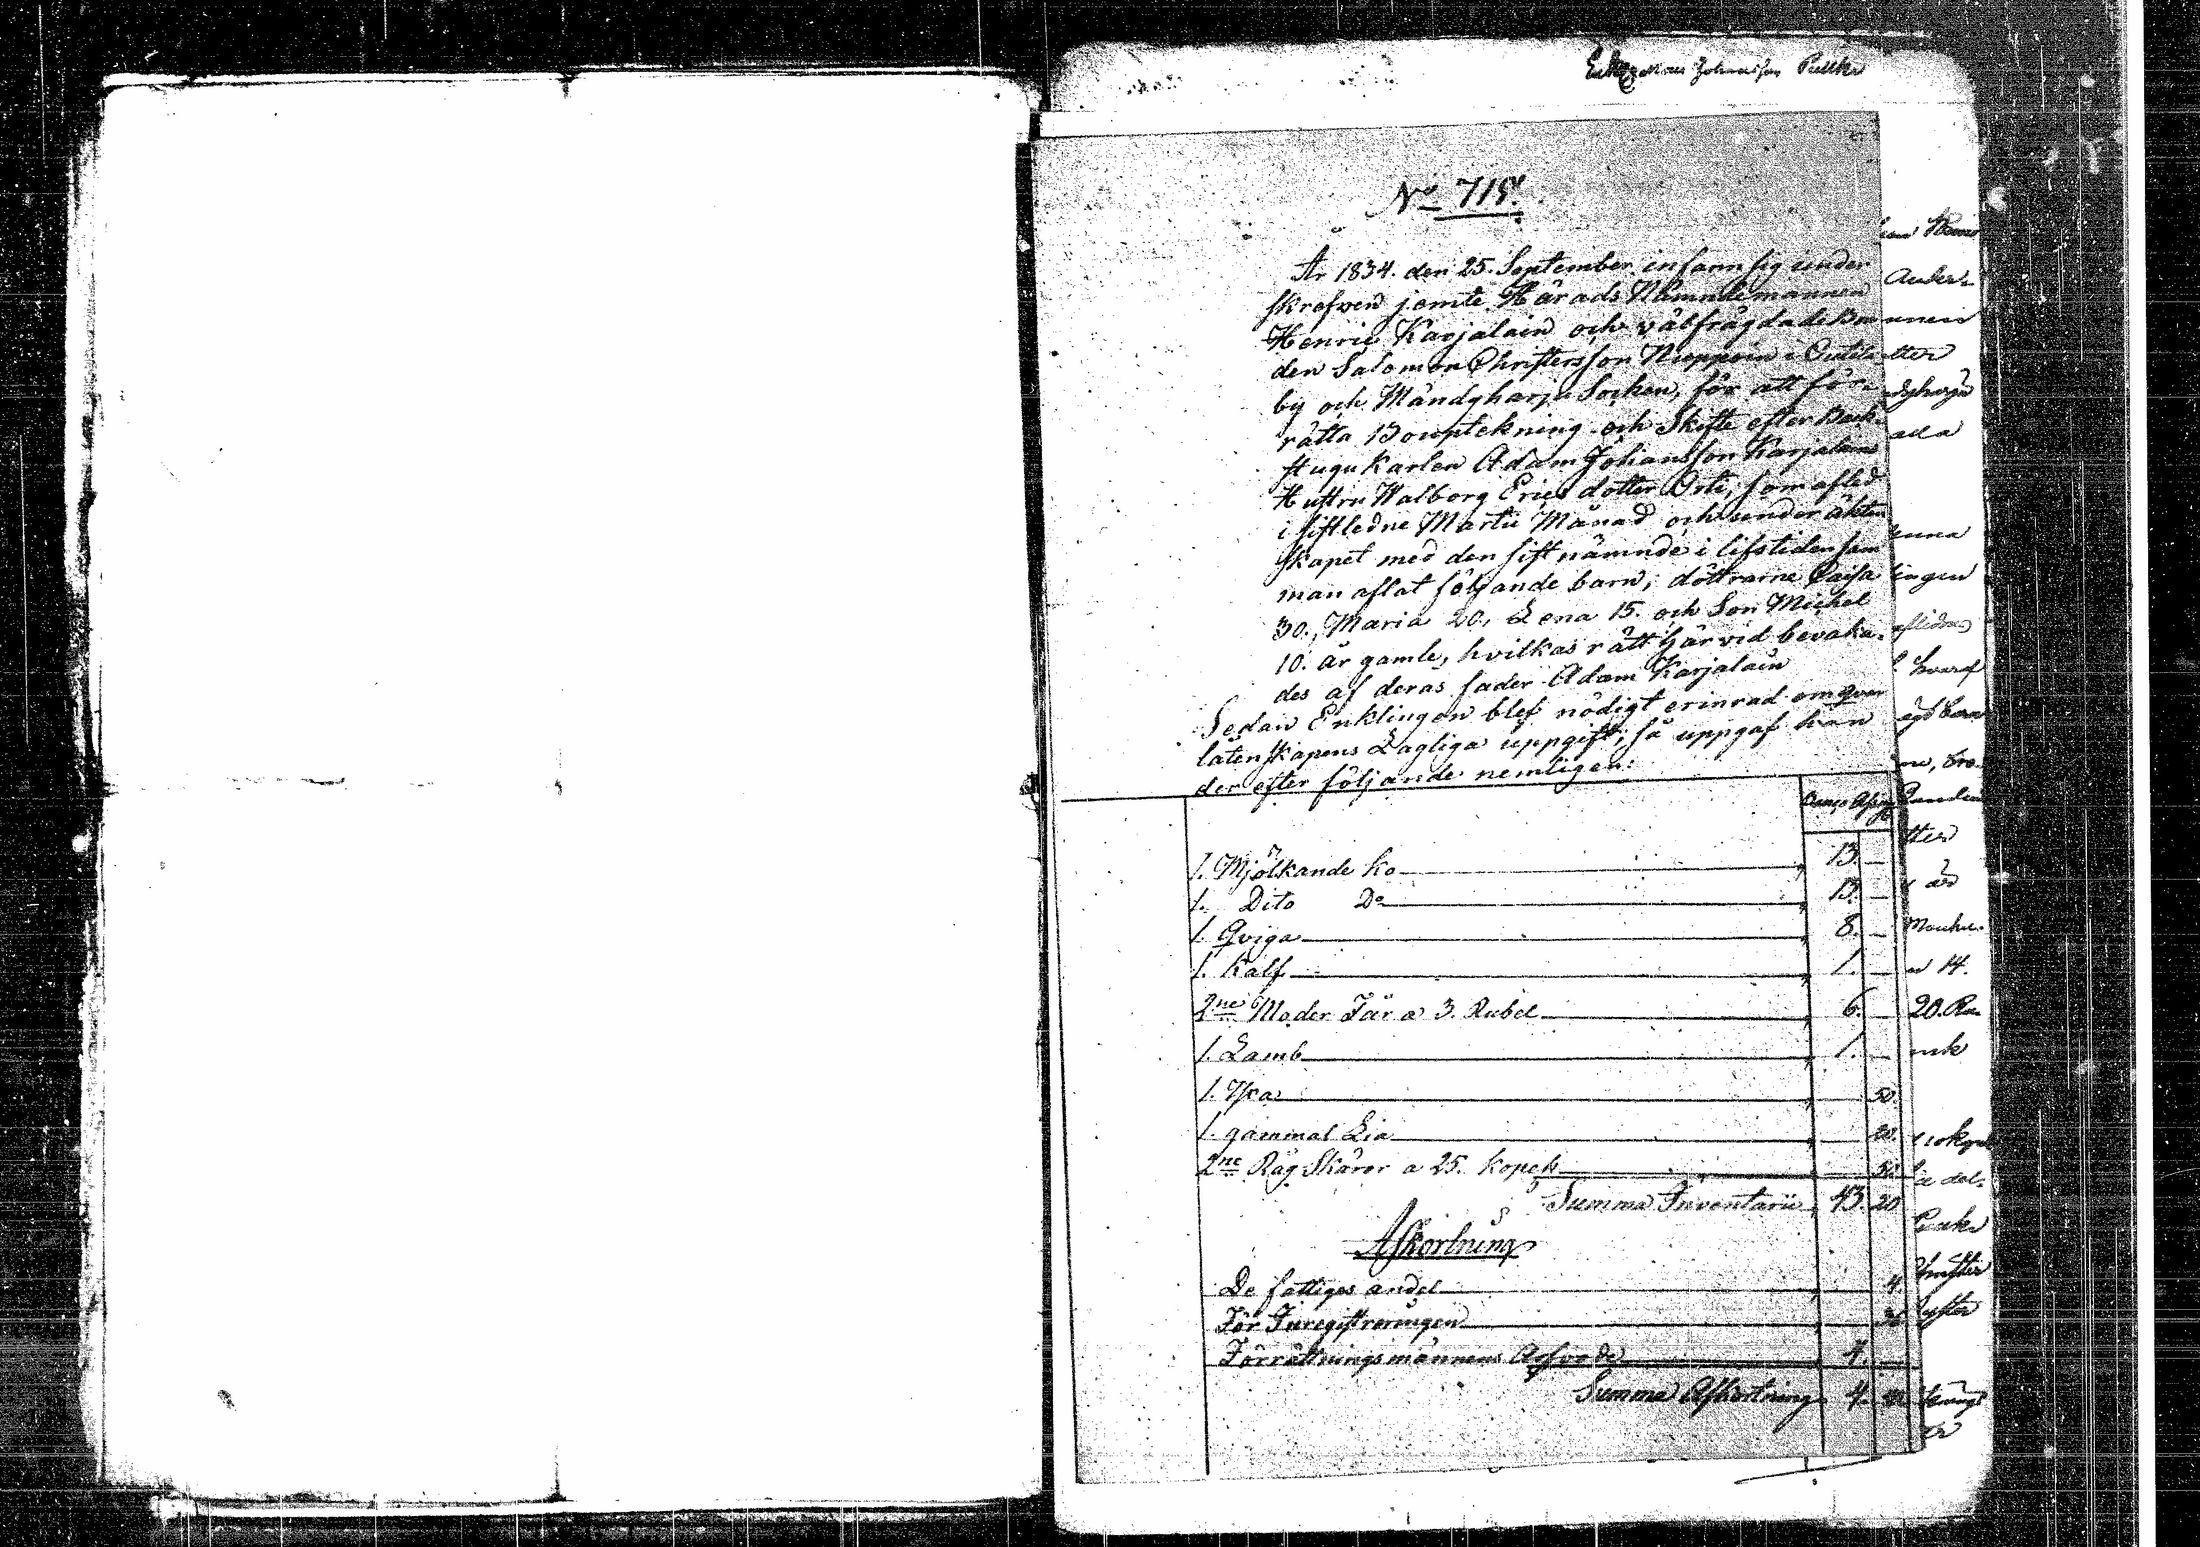 Johansson Pulkk
No 715.
År 1834. den 25. September infann sig under
skrefven jemte Härads Nämndemannen
Henric Karjalain och välfrägdade Bon
den Salomon Christersson Nuppoin i Outila
by och Mändyharju Socken, för att för=
rätta Bouptekning och Skifte efter Back=
stugu Karlen Adam Johansson Karjalains
Hustru Walborg Erics dotter Orti, som afled
i sistledne Martii Månad och under äkten
skapet med den sistnämnde i lifstiden sam
man aflat följande barn; döttrarne Caisa
30., Maria 20., Lena 15. och Son Michel
10. år gamle, hvilkas rätt härvid bevaka=
des af deras fader Adam Karjalain
Sedan Enklingen blef nödigt erinrad om qvar
låtenskapens Lagliga uppgift; så uppgaf han
der efter följande nemligen:
Banco Assig
1. Mjölkande Ko 13. —
1. Dito Do 13. —
1. Qviga 8. —
1. Kalf 1. —
2ne Moder Får a 3. Rubel 6. —
1. Lamb 1. —
1. Yxa 50.
1. gammal Lia 20.
2ne Råg Skäror a 25. Kopek 50.
Summa Inventarii 43. 20
Afkortning
De fattiges andel 4.
För Inregistreringen 36
Förrättningsmännens Arfvode 4. —
Summa Afkortning 4. 40